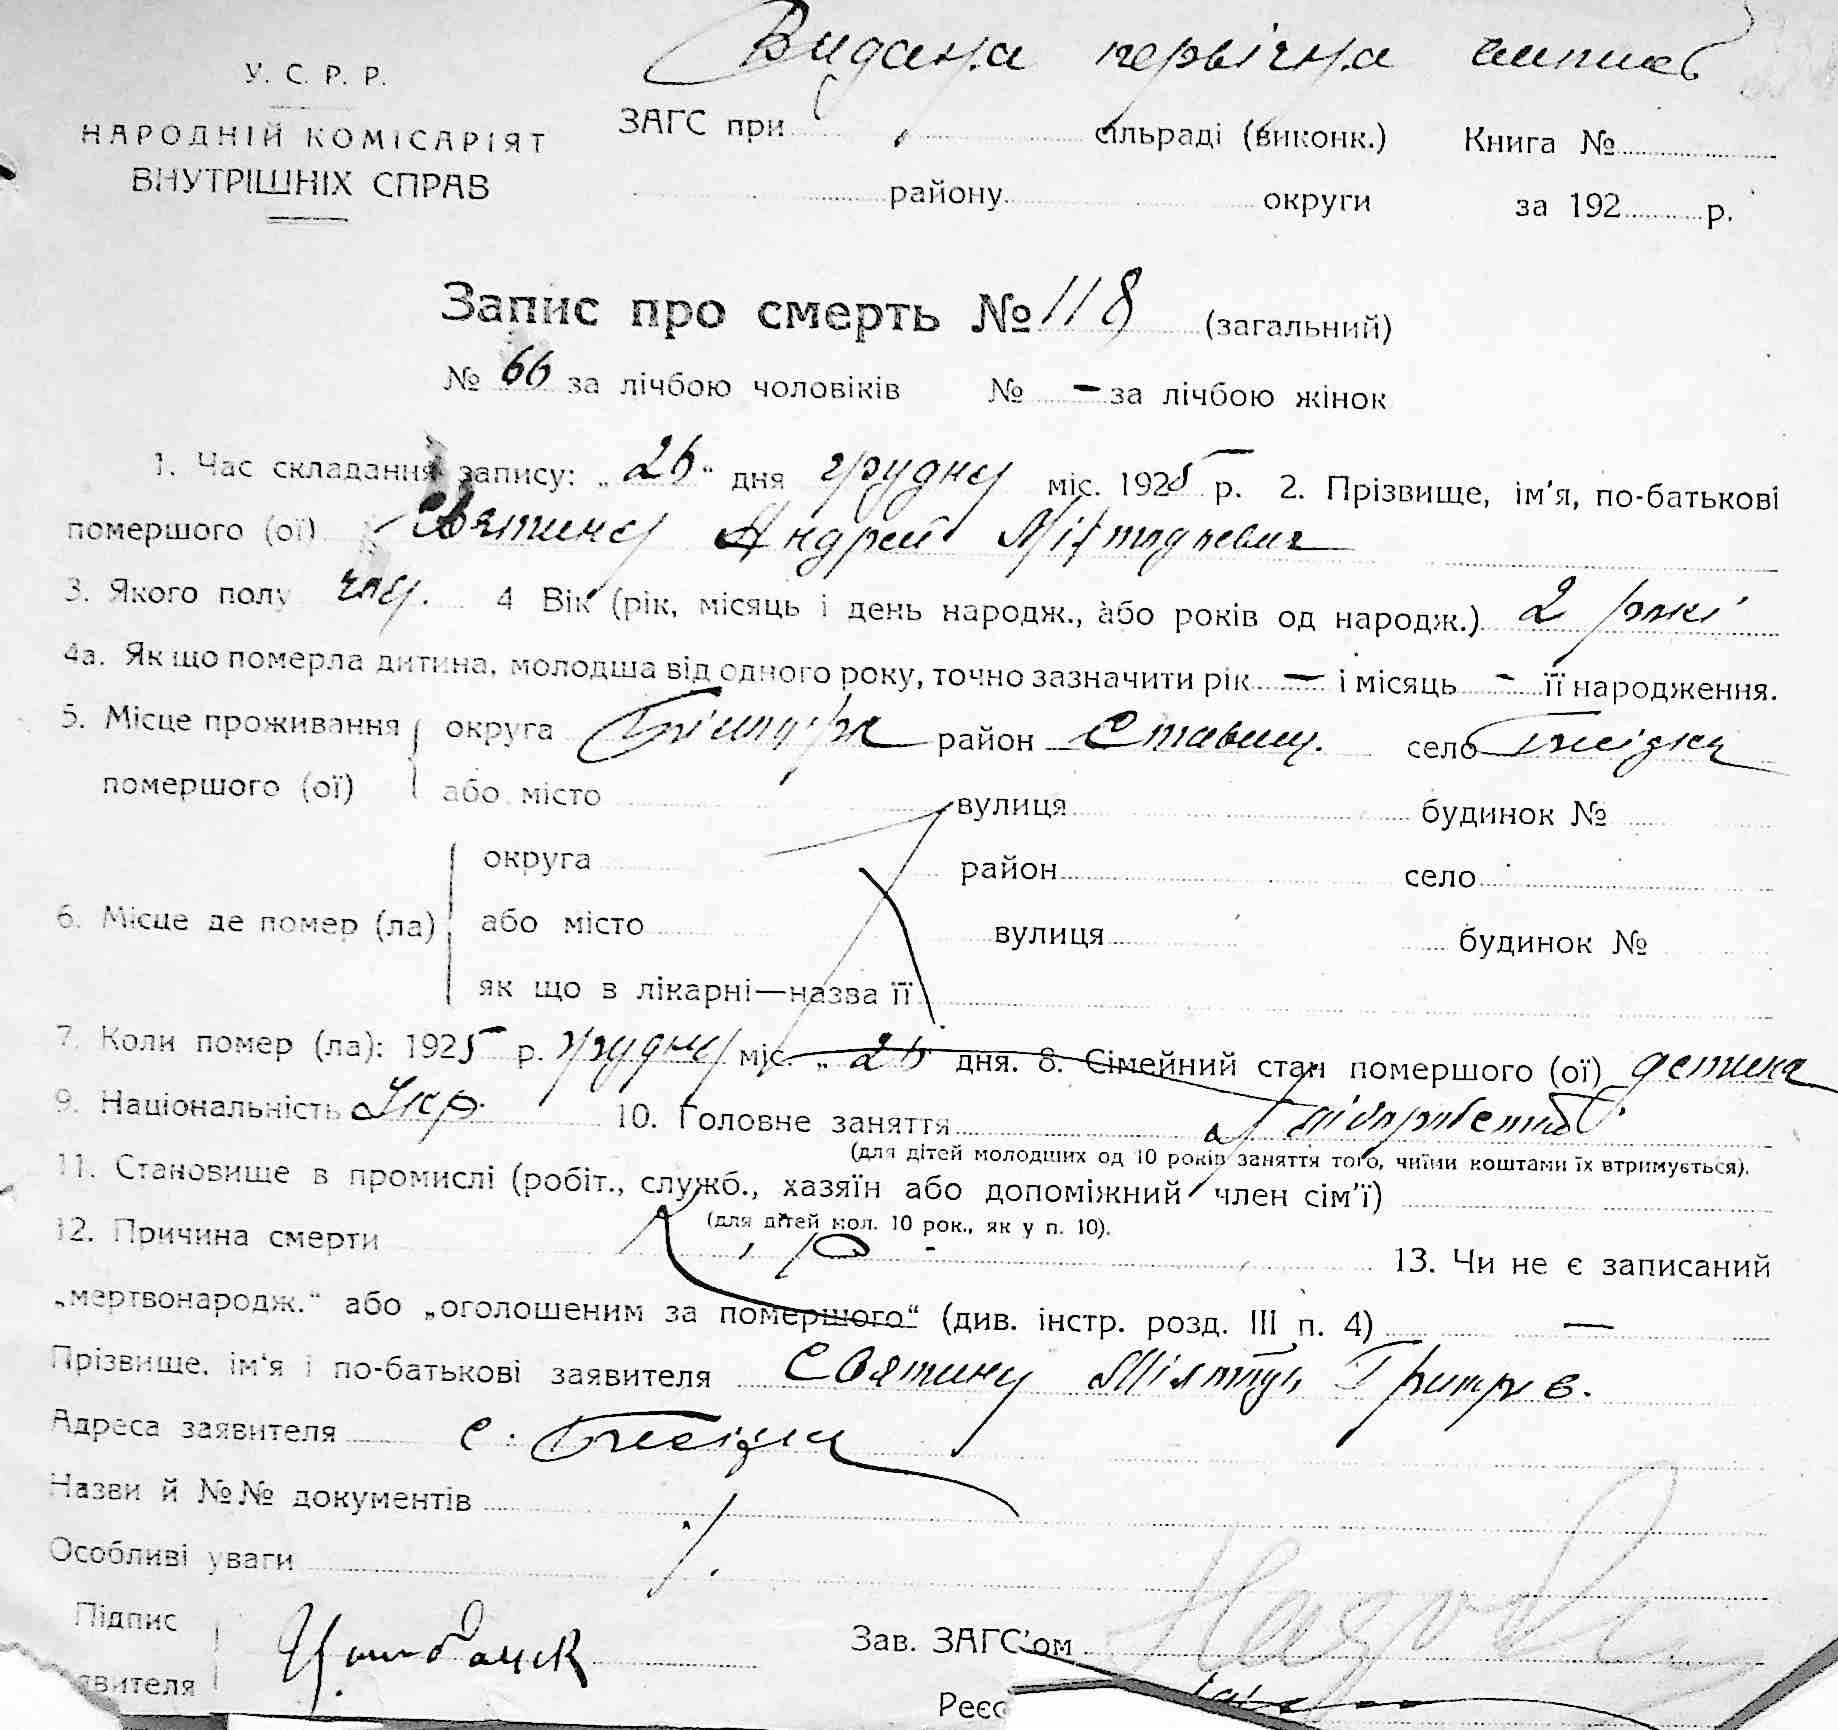 Видана первічна випись
У. С. Р. Р.
НАРОДНІЙ КОМІСАРІЯТ
ВНУТРІШНІХ СПРАВ
ЗАГС при сільраді (виконк.) Книга №
району округи за 192 р.
Запис про смерть № 118 (загальний)
№ 66 за лічбою чоловіків № — за лічбою жінок
1. Час складання запису: „26“ дня грудня міс. 1925 р. 2. Прізвище, ім'я, по-батькові
помершого (ої) Святину Андрей
3. Якого полу чол. 4 Вік (рік, місяць і день народж., або років од народж.) 2 рокі
4а. Як що померла дитина, молодша від одного року, точно зазначити рік — і місяць - її народження.
5. Місце проживання округа район Ставищ. село
помершого (ої) або місто вулиця будинок №
округа район село
6. Місце де помер (ла) або місто вулиця будинок №
як що в лікарні—назва її
7. Коли помер (ла): 1925 р. грудня міс. „26“ дня. 8. Сімейний стан помершого (ої) детина
9. Національність Укр. 10. Головне заняття
(для дітей молодших од 10 років заняття того, чиїми коштами їх втримується).
11. Становище в промислі (робіт., служб., хазяїн або допоміжний член сім'ї)
(для дітей мол. 10 рок., як у п. 10).
12. Причина смерти 13. Чи не є записаний
„мертвонародж.“ або „оголошеним за помершого“ (див. інстр. розд. III п. 4) —
Прізвище, ім'я і по-батькові заявителя Святину
Адреса заявителя с.
Назви й №№ документів
Особливі уваги
Підпис
явителя
Зав. ЗАГС'ом
Реєс